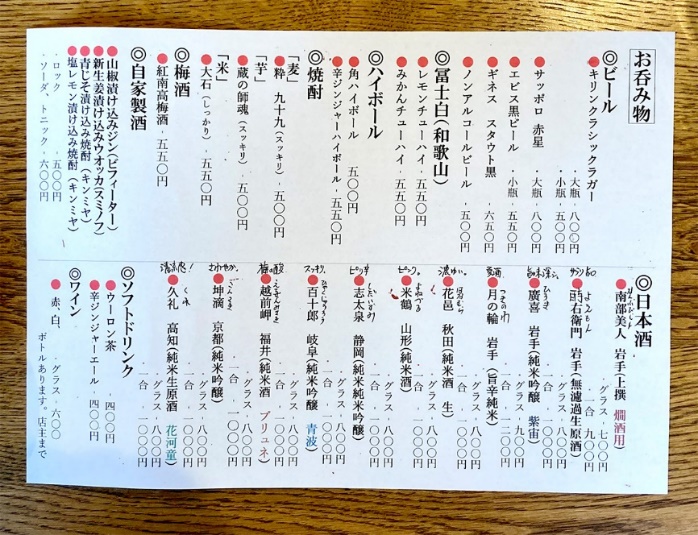 お呑み物
◎ビール
キリンクラシックラガー
・大瓶・八〇〇円
・小瓶・五五〇円
サッポロ 赤星
・大瓶・八〇〇円
エビス黒ビール・小瓶・五五〇円
ギネス スタウト黒・六五〇円
ノンアルコールビール・五〇〇円
◎富士白(和歌山)
レモンチューハイ・五五〇円
みかんチューハイ・五五〇円
◎ハイボール
角ハイボール 五〇〇円
辛ジンジャーハイボール・五五〇円
◎焼酎
「麦」
粋 九十九(スッキリ)・五〇〇円
「芋」
蔵の師魂(スッキリ)・五五〇円
「米」
大石(しっかり)・五五〇円
◎梅酒
紅南高梅酒・五五〇円
◎自家製酒
山椒漬け込みジン(ビフィーター)
新生姜漬け込みウオッカ(スミノフ)
青じそ漬け込み焼酎(キンミヤ)
塩レモン漬け込み焼酎(キンミヤ)
・ロック・五〇〇円
・ソーダ、トニック・六〇〇円
◎日本酒
南部美人 岩手(上撰 燗酒用
・グラス・七〇〇円
岩手(無濾過生原酒)
・一合 九〇〇円
廣喜 岩手(純米吟醸 紫宙)
・グラス・九〇〇円
月の輪 岩手(旨辛純米)
つきのわ
花邑 秋田(純米酒 生)
・グラス・八〇〇円
米鶴 山形(純米酒)
志太泉 静岡(純米純米吟醸)
・一合・一〇〇〇円
スッキリ
百十郎 岐阜(純米吟醸 青波)
・グラス・八〇〇円
・一合・一〇〇〇円
越前岬 福井(純米酒 ブリュネ)
・グラス・八〇〇円
さわやか
坤滴 京都(純米吟醸)
久礼 高知(純米生原酒 花河童)
くれ
・グラス・八〇〇円
・一合・一〇〇〇円
◎ソフトドリンク
ウーロン茶・四〇〇円
辛ジンジャーエール・四〇〇円
◎ワイン
赤、白、・グラス・六〇〇
ボールあります。店主まで